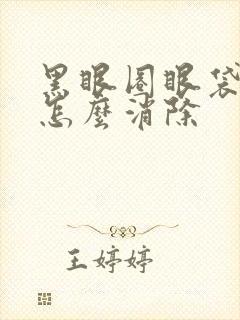 黑眼圈眼袋
怎麼消除
王婷婷